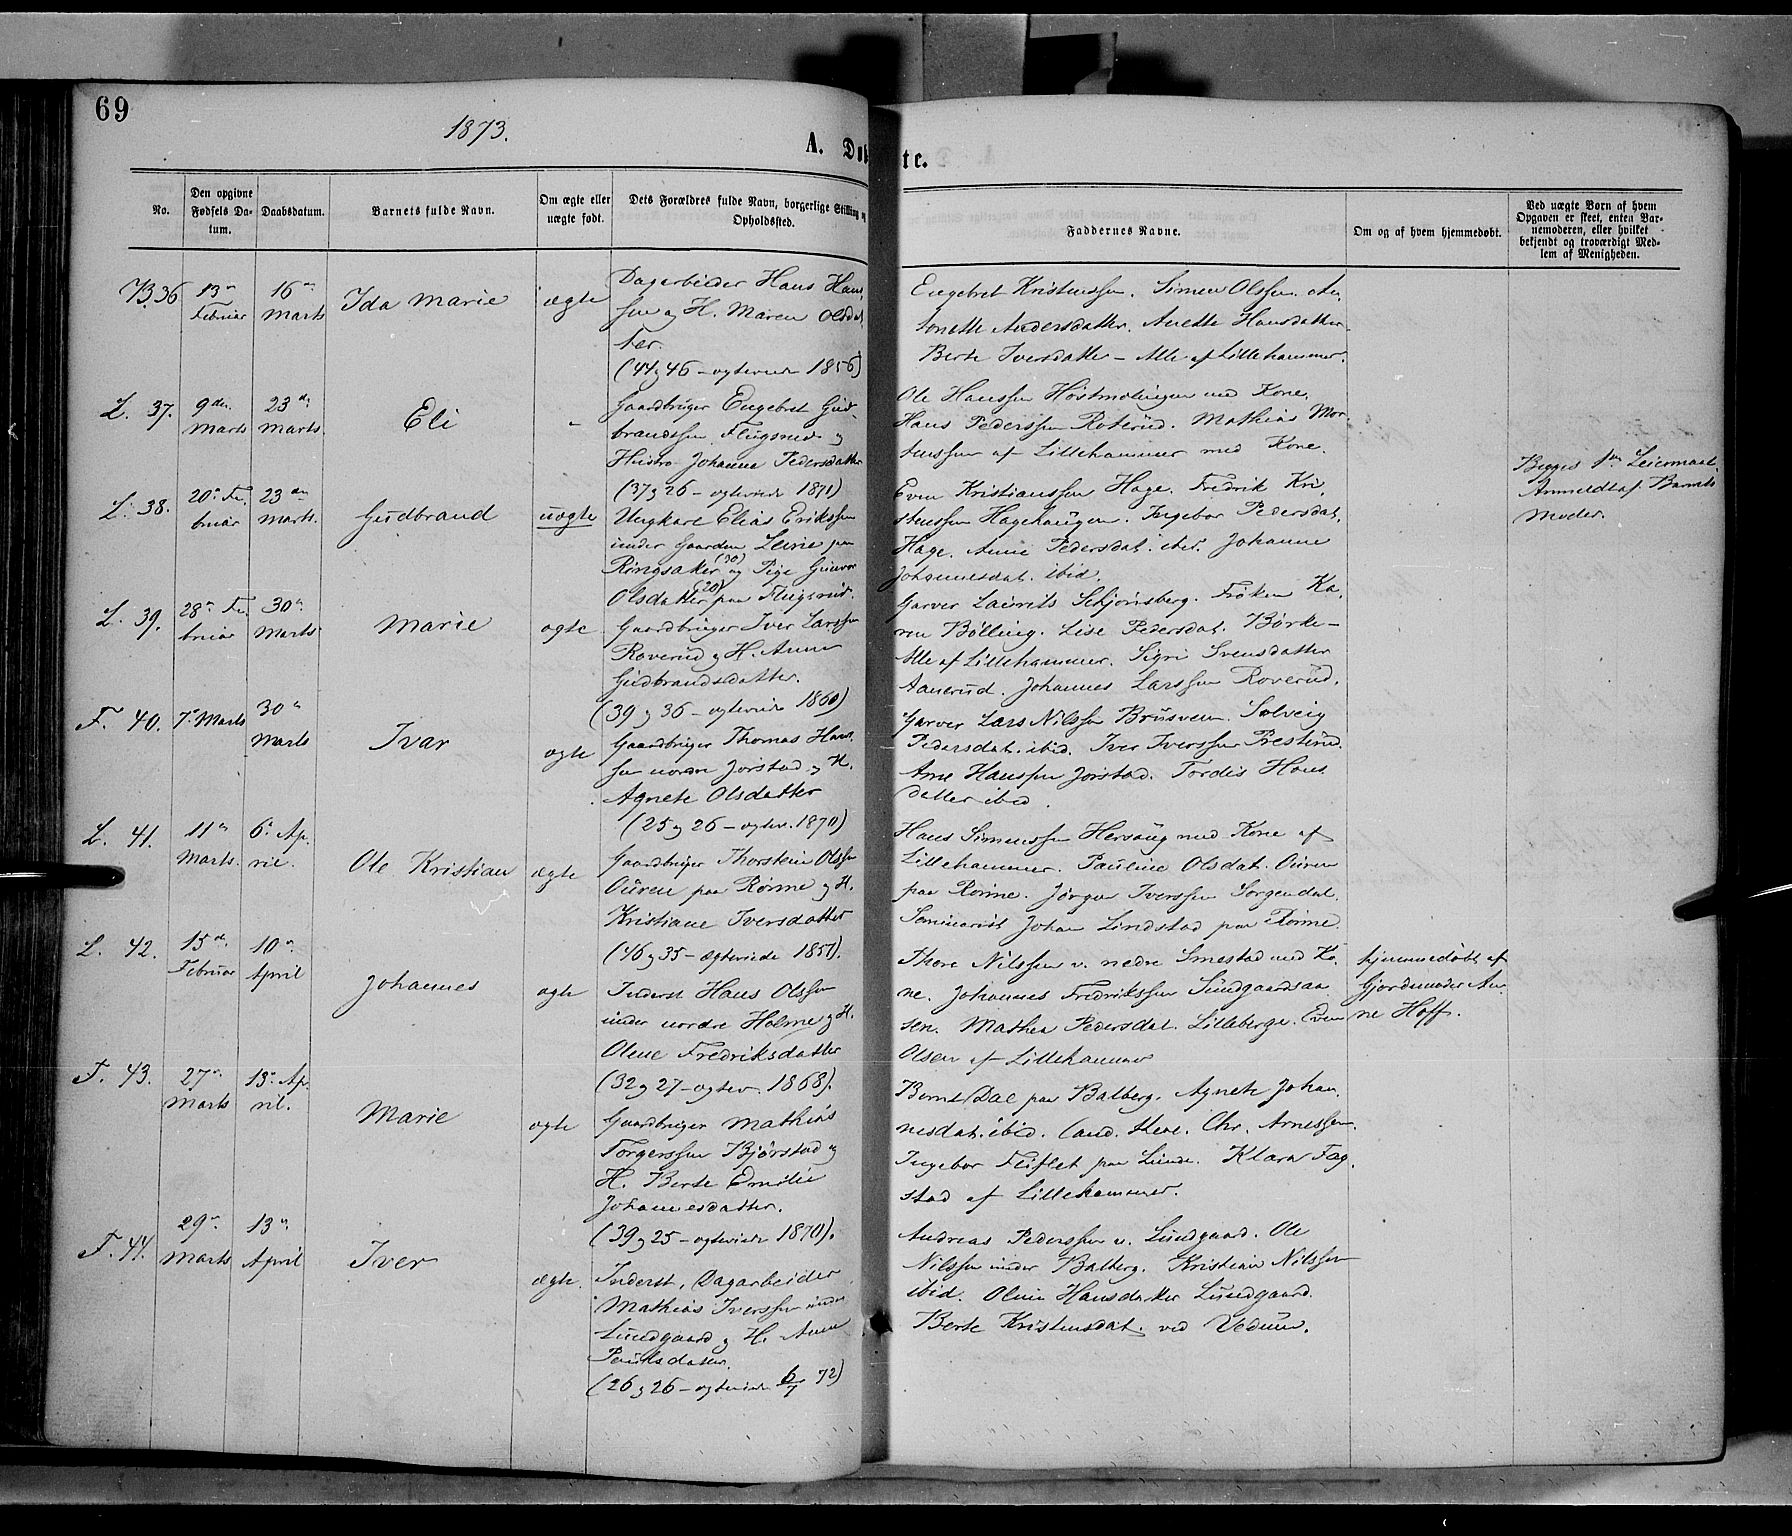 69
1873.
A. Døbte.
No.
Den opgivne Fødsels Datum.
Daabsdatum.
Barnets fulde Navn.
Om ægte eller uægte født.
Dets Forældres fulde Navn, borgerlige Stilling og Opholdssted.
Faddernes Navne.
Om og af hvem hjemmedøbt.
Ved uægte Børn af hvem Opgaven er skeet, enten Barnemoderen, eller hvilket bekjendt og troværdigt Medlem af Menigheden.
B. 36
13de Februar
16de Marts
Ida Marie
ægte
Dagarbeider Hans Hans-
sen og H. Maren Olsdat-
ter.
(44 og 46 - egteviede 1856)
Engebret Kristenssen. Simen Olssen. An-
tonette Andersdatter. Anette Hansdatter.
Berte Iversdatter - Alle af Lillehammer.
L. 37.
9de Marts
23de Marts.
Eli
"
Gaardbruger Engebret Gud-
brandssen Flugsrud og
Hustro Johanne Pedersdatter
(37 og 26 - egteviede 1871)
Ole Hanssen Høstmølingen med Kone.
Hans Pederssen Roterud. Mathias Mor-
tenssen af Lillehammer med Kone.
L. 38.
20de Fe-
bruar
23de Marts.
Gudbrand
uægte
Ungkarl Elias Erikssen
under Gaarden Leine paa
Ringsaker (30) og Pige Gunvor
Olsdatter (20) paa Flugsrud.
Even Kristianssen Hage. Fredrik Kri-
stenssen Hagehaugen. Ingebor Pedersdat.
Hage. Anne Pedersdat. ibid. Johanne
Johannesdat. ibid.
Begges 1ste Leiermaal.
Anmeldt af Barnets
Moder.
L. 39.
28de Fe-
bruar
30te Marts
Marie
egte
Gaardbruger Iver Larssen
Roverud og H. Anne
Gudbrandsdatter.
(39 og 36 - egteviede 1860)
Garver Laurits Schjønsberg. Frøken Ka-
ren Bølling. Lise Pedersdat. Børke -
Alle af Lillehammer. Sigri Svensdatter
Aanerud. Johannes Larssen Roverud.
F. 40.
7de Marts
30te Marts
Ivar
egte
Gaardbruger Thomas Hans-
sen nordre Jørstad og H.
Agnete Olsdatter
(25 og 26 - egtev. 1870)
Garver Lars Nilssen Brusveen. Solveig
Pedersdat. ibid. Iver Iverssen Prestrud.
Arne Hanssen Jørstad. Tordis Hans
datter ibid.
L. 41.
11te Marts.
6te Ap-
ril.
Ole Kristian
ægte
Gaardbruger Thorstein Olssen
Ouren paa Rønne og H.
Kristiane Iversdatter
(46 og 35 - egteviede 1851).
Hans Simenssen Hersoug med Kone af
Lillehammer. Pauline Olsdat. Ouren
paa Rønne. Jørgen Iverssen Sorgendal.
Seminarist Johan Lindstad paa Rønne.
L. 42.
15de Februar
10de April
Johannes
egte
Inderst Hans Olssen
under nordre Holme og H.
Olene Fredriksdatter
(32 og 27 - egtev. 1868).
Thore Nilssen v. nedre Smestad med Ko-
ne. Johannes Fredrikssen Sundgaardsaa-
sen. Mathea Pedersdat. Lilleberge. Even
Olsen af Lillehammer
hjemmedøbt af
Gjordemoder An-
ne Hoff.
F. 43.
27de Marts
13de Ap-
ril.
Marie
egte
Gaardbruger Mathias
Torgerssen Bjørstad og
H. Berte Emilie
Johannesdatter.
(39 og 25 - egteviede 1870).
Bernt Dal paa Balberg. Agnete Johan-
nesdat. ibid. Cand. theol. Chr. Arnessen.
Ingebor Fliflet paa Lunde. Klara Fag-
stad af Lillehammer.
F. 44.
29de Marts
13de April
Iver
ægte.
Inderst, Dagarbeider
Mathias Iverssen under
Lundgaard og H. Anne
Poulsdatter.
(26 og 26 - egteviede 6/7 72)
Andreas Pederssen v. Lundgaard. Ole
Nilssen under Balberg. Kristian Nilssen
ibid. Oline Hansdatter Lundgaard.
Berte Kristensdat. ved Vedum.